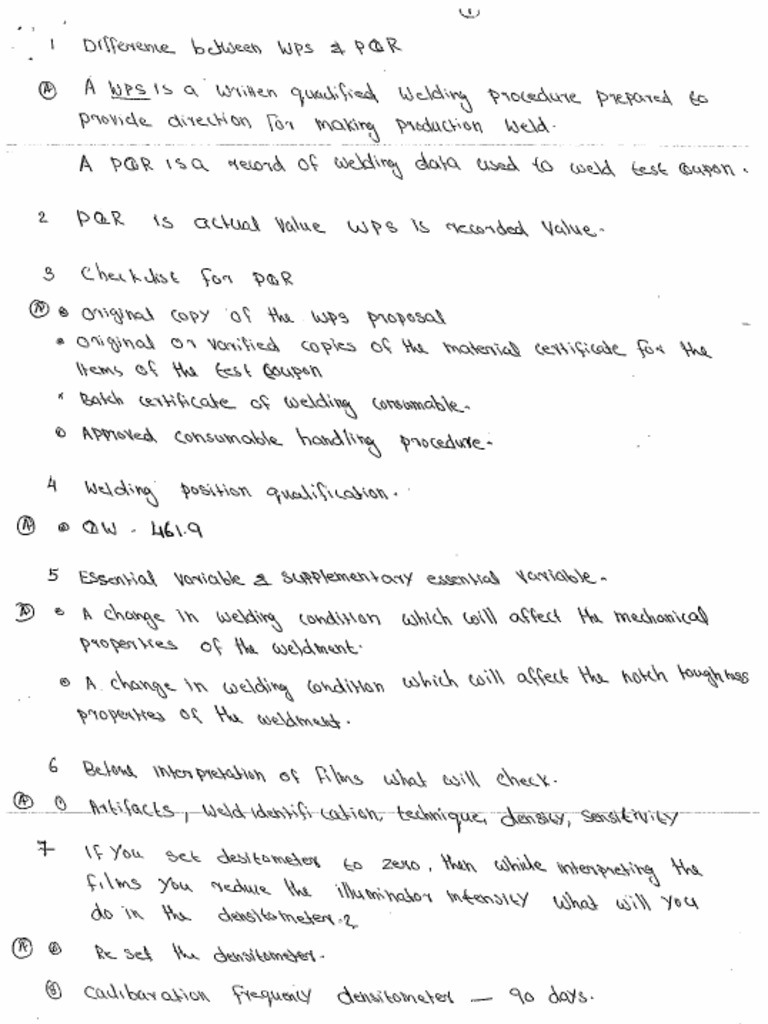 (1)
1 Difference between WPS & PQR
(A) A WPS is a written qualified welding procedure prepared to
provide direction for making production weld.
A PQR is a record of welding data used to weld test coupon.
2 PQR is actual value WPS is recorded value.
3 Checklist for PQR
(A) • original copy of the wps proposal
• original or varified copies of the material certificate for the
items of the test coupon
• Batch certificate of welding consumable.
• Approved consumable handling procedure.
4 Welding position qualification.
(A) • QW - 461.9
5 Essential variable & supplementary essential variable.
(A) • A change in welding condition which will affect the mechanical
properties of the weldment.
• A change in welding condition which will affect the notch toughness
properties of the weldment.
6 Before interpretation of films what will check.
(A) • Artifacts, weld identification, technique, density, sensitivity
7 If you set desitometer to zero, then while interpreting the
films you reduce the illuminator intensity what will you
do in the densitometer?
(A) • Re set the densitometer.
(8) Calibaration frequency densitometer — 90 days.